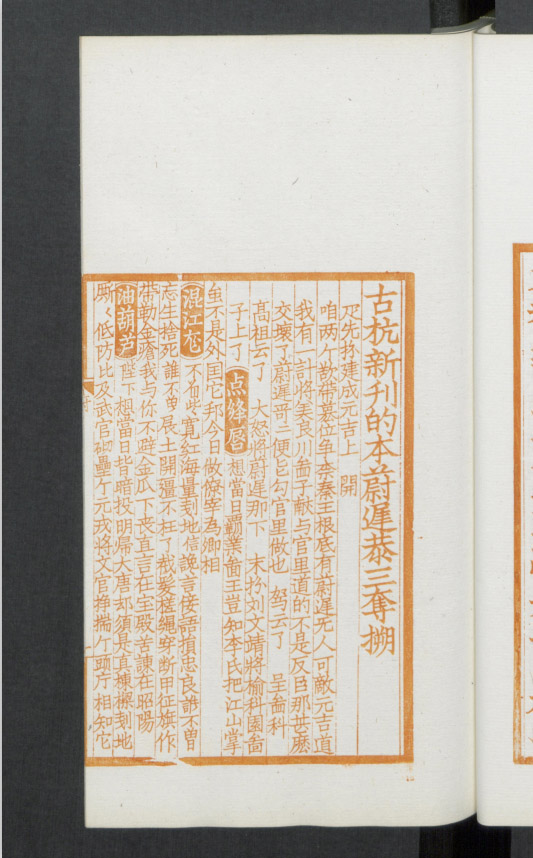 古杭新刊的本蔚遲恭三奪搠
疋先扮建成元吉上　開
咱两个欲带篡位争李秦王根底有蔚遲无人可敵元吉道
我有一計将美良川啚子献与官里道的不是反臣那甚麽
交壞了蔚遲哥二便宜勾官里做也　駕云了　呈啚科
高祖云了　大怒将蔚遲那下　末扮刘文靖将榆科園啚
子上了　点絳唇　想當日霸業啚王豈知李氏把江山掌
虽不是外国它邦今日做僚宰為卿相
混江龙　不着些寛红海量刬地信讒言佞語損忠良誰不曽
忘生捨死誰不曽展土開疆不枉了截髮搓縄穿断甲征旗作
带勒金瘡我与你不避金瓜下丧直言在宝殿苦諫在昭陽
油葫芦　陛下想當日背暗投明帰大唐却須是真棟樑刬地
厮〻低防比及武官砌壘个元戎将文官挣揣个頭厅相知它